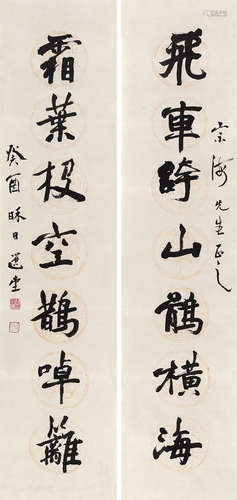 飛車跨山鶻橫海
宗海先生正之
霜葉投空鵲啅籬
癸酉秋日